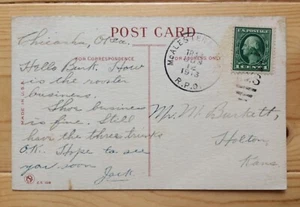 POST CARD
Chickasha, Okla.
FOR CORRESPONDENCE
Hello Burk. How
is the rooster
business.
Shoe business
is fine. Still
have the three trunks
OK. Hope to see
you soon
Jack.
McALESTER
1913
R.P.O.
U.S. POSTAGE
1 CENT 1
Mr. M. Burkett,
Holton,
Kans